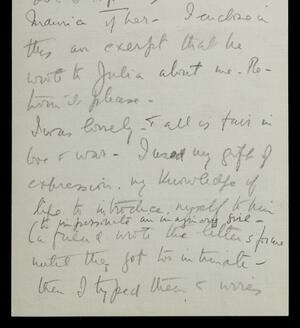 Mauria of her - I enclose in
this an exerpt that he
wrote to Julia about me. Re-
turn it please -
I was lonely - & all is fair in
love & war - I used my gift of
expression, my knowledge of
life to introduce myself to him
(to impersonate an imaginary girl -
(a friend wrote the letters for me
until they got too intimate -
then I typed them &